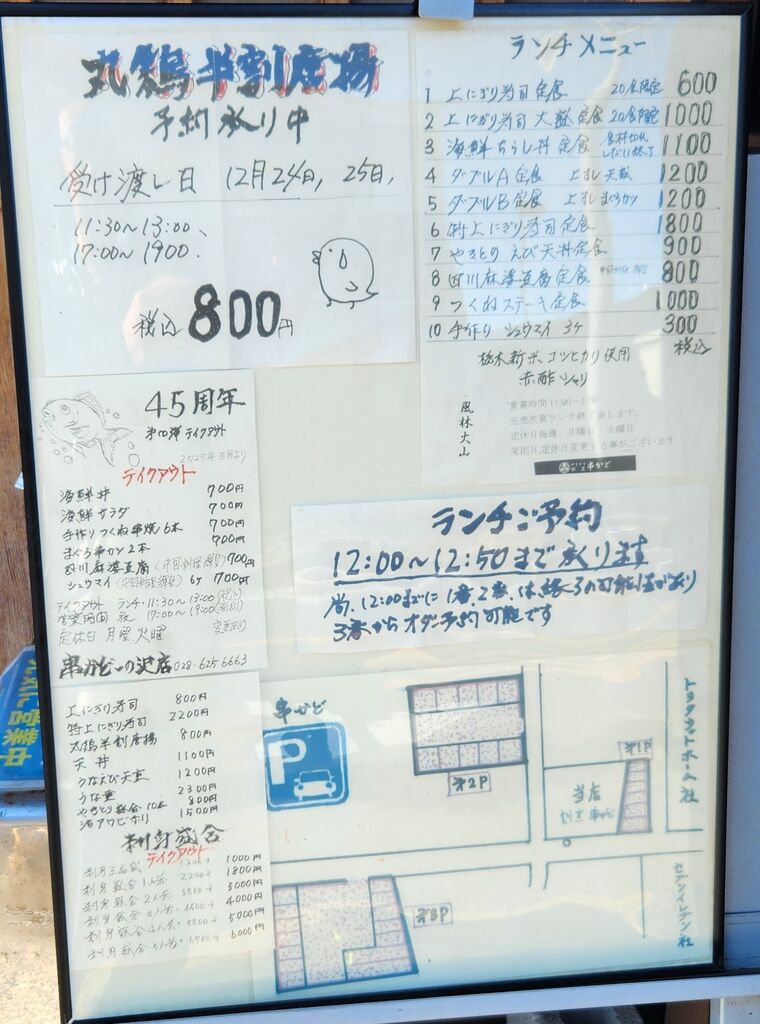 丸鶏半割唐揚
予約承り中
受け渡し日 12月24日, 25日,
11:30〜13:00、
17:00〜19:00.
税込 800円
ランチメニュー
1 上にぎり寿司定食 20食限定 600
2 上にぎり寿司 大盛定食 20食限定 1000
3 海鮮ちらし丼定食 1100
4 ダブルA定食 上すし 天ぷら 1200
5 ダブルB定食 上すし まぐろカツ 1200
6 特上にぎり寿司定食 1800
7 やきとり えび天丼定食 900
8 四川麻婆豆腐定食 800
9 つくねステーキ定食 1000
10 手作り シュウマイ 3ケ 300
税込
栃木新米 コシヒカリ使用
赤酢シャリ
風林火山
営業時間 11:00〜
完売次第ランチ終了致します。
定休日毎週 月曜日 火曜日
変則月,定休日変更する事がございます
串かど
45周年
テイクアウト
2025年3月より
テイクアウト
海鮮丼 700円
海鮮サラダ 700円
手作りつくね串焼6本 700円
まぐろ串カツ2本 700円
四川麻婆豆腐 700円
シュウマイ 6ケ 700円
テイクアウト ランチ・11:30〜13:00
夜 17:00〜19:00
定休日 月曜 火曜
028-625-6663
ランチご予約
12:00〜12:50まで承ります
上にぎり寿司 800円
特上にぎり寿司 2200円
丸鶏半割唐揚 800円
天丼 1100円
うなえび天重 1200円
うな重 2300円
やきとり盛合10本 800円
活アワビホリ 1500円
刺身盛合
テイクアウト
刺身三点盛 1200→ 1000円
刺身盛合1人前 2200→ 1800円
刺身盛合2人前 3500→ 3000円
刺身盛合3人前 4500→ 4000円
刺身盛合4人前 5500→ 5000円
刺身盛合5人前 6500→ 6000円
串かど
P
第2P
第1P
当店
割烹 串かど
第3P
トヨタウッドホーム社
セブンイレブン社
営業中